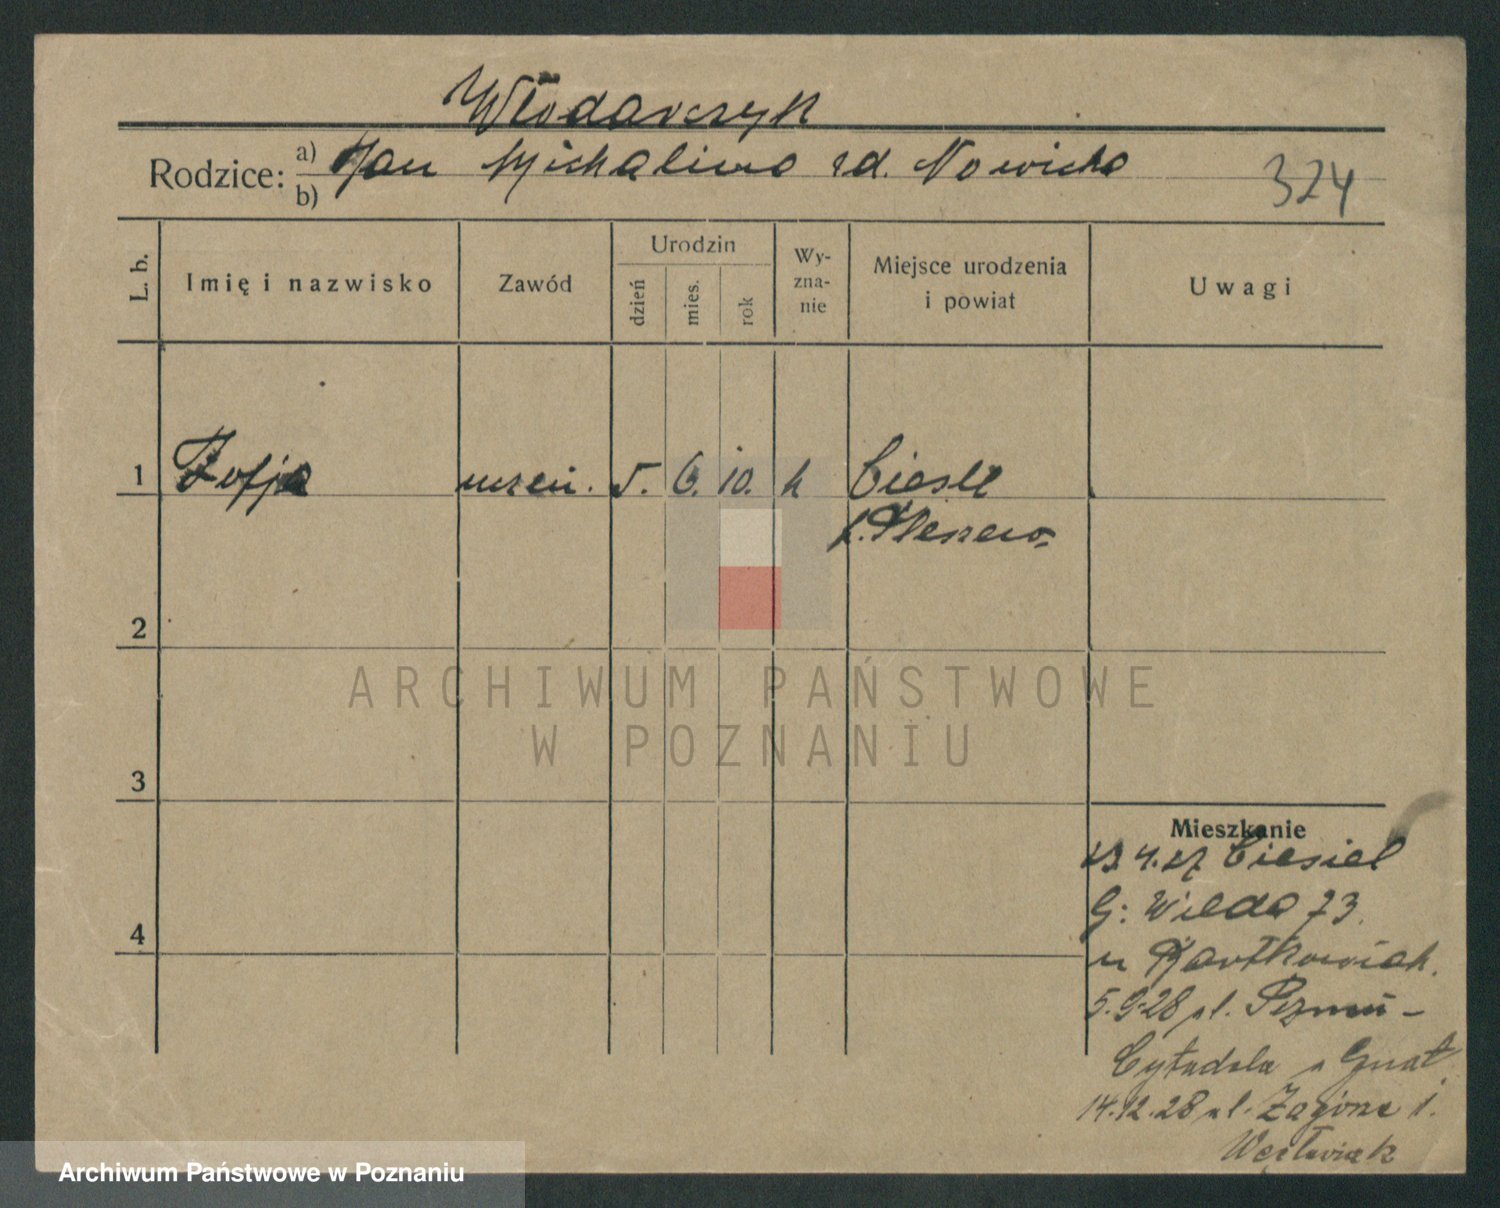 Włodarczyk
Rodzice: a) Jan Michalina zd. Nowicka
b)
324
L. b.
Imię i nazwisko
Zawód
Urodzin
dzień
mies.
rok
Wy-
zna-
nie
Miejsce urodzenia
i powiat
Uwagi
1 Zofja uczen. 5. 6. 10. k Ciesle
p. Pleszew
2
3
4
ARCHIWUM PAŃSTWOWE
W POZNANIU
Mieszkanie
4.27 Ciesiel
G: Wilda 73.
u Bartkowiak.
5.9.28 pl.
Cytadela Gnat
14.12.28 ul. Zagórze 1.
Węcławiak
Archiwum Państwowe w Poznaniu